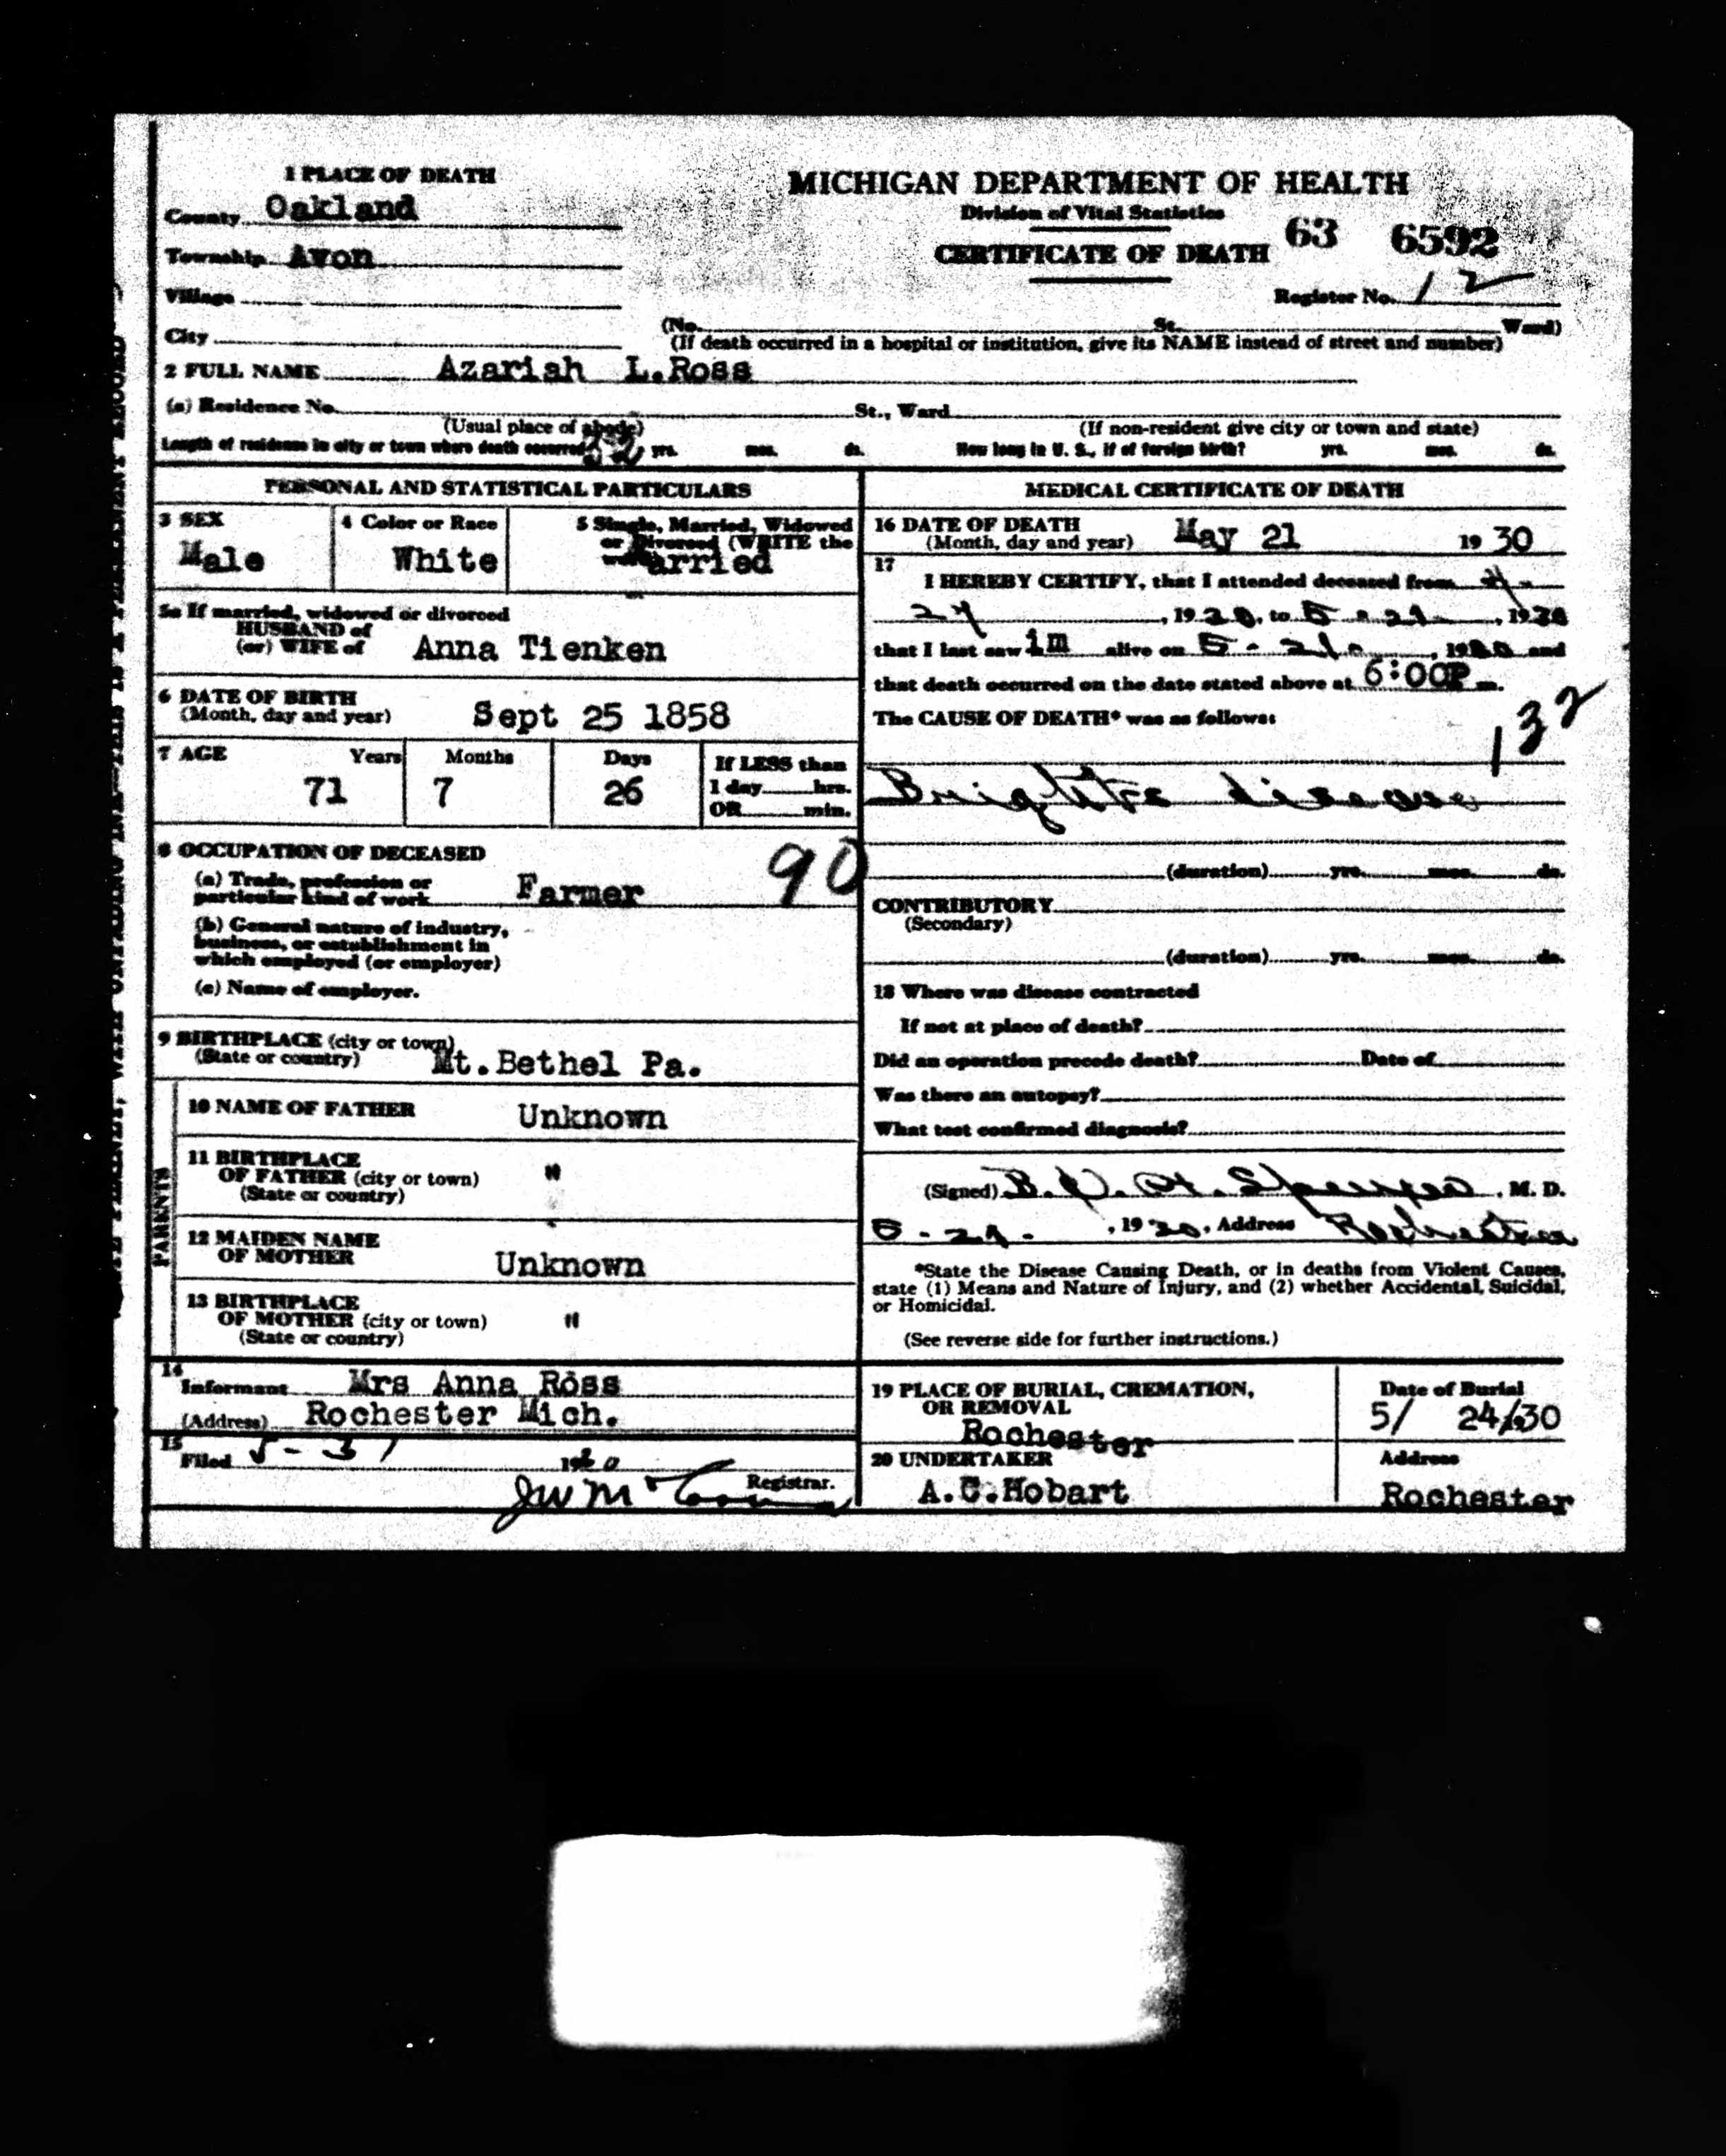 1 PLACE OF DEATH
County Oakland
Township Avon
Village
City
MICHIGAN DEPARTMENT OF HEALTH
Division of Vital Statistics
CERTIFICATE OF DEATH
63 6592
Register No. 12
(No. St. Ward)
(If death occurred in a hospital or institution, give its NAME instead of street and number)
2 FULL NAME Azariah L.Ross
(a) Residence No. St., Ward
(Usual place of abode) (If non-resident give city or town and state)
Length of residence in city or town where death occurred yrs. mos. ds. How long in U. S., if of foreign birth? yrs. mos. ds.
PERSONAL AND STATISTICAL PARTICULARS
3 SEX
Male
4 Color or Race
White
5 Single, Married, Widowed
or Divorced (WRITE the
Married
5a If married, widowed or divorced
HUSBAND of
(or) WIFE of Anna Tienken
6 DATE OF BIRTH
(Month, day and year) Sept 25 1858
7 AGE Years Months Days
71 7 26
If LESS than
1 day hrs.
OR min.
8 OCCUPATION OF DECEASED
90
(a) Trade, profession or
particular kind of work Farmer
(b) General nature of industry,
business, or establishment in
which employed (or employer)
(c) Name of employer.
9 BIRTHPLACE (city or town)
(State or country) Mt.Bethel Pa.
PARENTS
10 NAME OF FATHER Unknown
11 BIRTHPLACE
OF FATHER (city or town) "
(State or country)
12 MAIDEN NAME
OF MOTHER Unknown
13 BIRTHPLACE
OF MOTHER (city or town) "
(State or country)
14
Informant Mrs Anna Ross
(Address) Rochester Mich.
15
Filed 5-31 1930
Registrar.
MEDICAL CERTIFICATE OF DEATH
16 DATE OF DEATH
(Month, day and year) May 21 1930
17
I HEREBY CERTIFY, that I attended deceased from 4-
, 1930, to 5-21-, 1930
that I last saw im alive on 5-21-, 1930 and
that death occurred on the date stated above at 6:00P m.
The CAUSE OF DEATH* was as follows:
132
Brights disease
(duration) yrs. mos. ds.
CONTRIBUTORY
(Secondary)
(duration) yrs. mos. ds.
18 Where was disease contracted
If not at place of death?
Did an operation precede death? Date of
Was there an autopsy?
What test confirmed diagnosis?
(Signed) , M. D.
, 1930, Address Rochester
*State the Disease Causing Death, or in deaths from Violent Causes,
state (1) Means and Nature of Injury, and (2) whether Accidental, Suicidal,
or Homicidal.
(See reverse side for further instructions.)
19 PLACE OF BURIAL, CREMATION,
OR REMOVAL
Rochester
Date of Burial
5/ 24/30
20 UNDERTAKER
A.C.Hobart
Address
Rochester